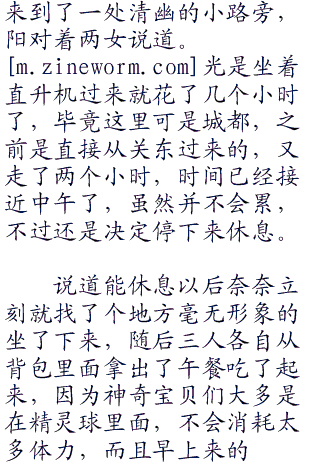 来到了一处清幽的小路旁，
阳对着两女说道。
[m.zineworm.com]光是坐着
直升机过来就花了几个小时
了，毕竟这里可是城都，之
前是直接从关东过来的，又
走了两个小时，时间已经接
近中午了，虽然并不会累，
不过还是决定停下来休息。
说道能休息以后奈奈立
刻就找了个地方毫无形象的
坐了下来，随后三人各自从
背包里面拿出了午餐吃了起
来，因为神奇宝贝们大多是
在精灵球里面，不会消耗太
多体力，而且早上来的